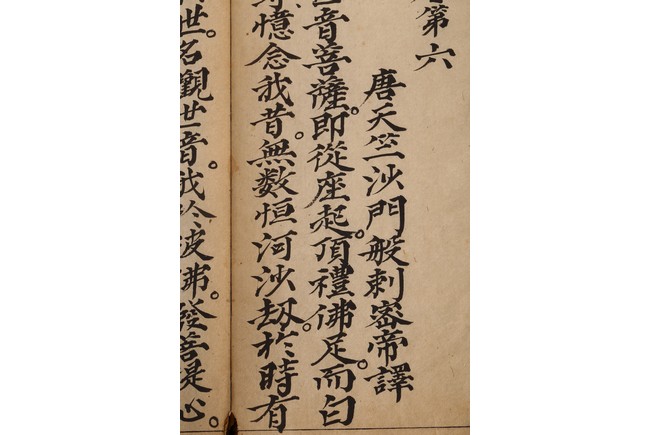 第六
唐天竺沙門般剌宻帝譯
音菩薩。即從座起。頂禮佛足。而白
憶念我昔。無数恒河沙劫。於時有
世。名觀世音。我於彼佛。發菩提心。